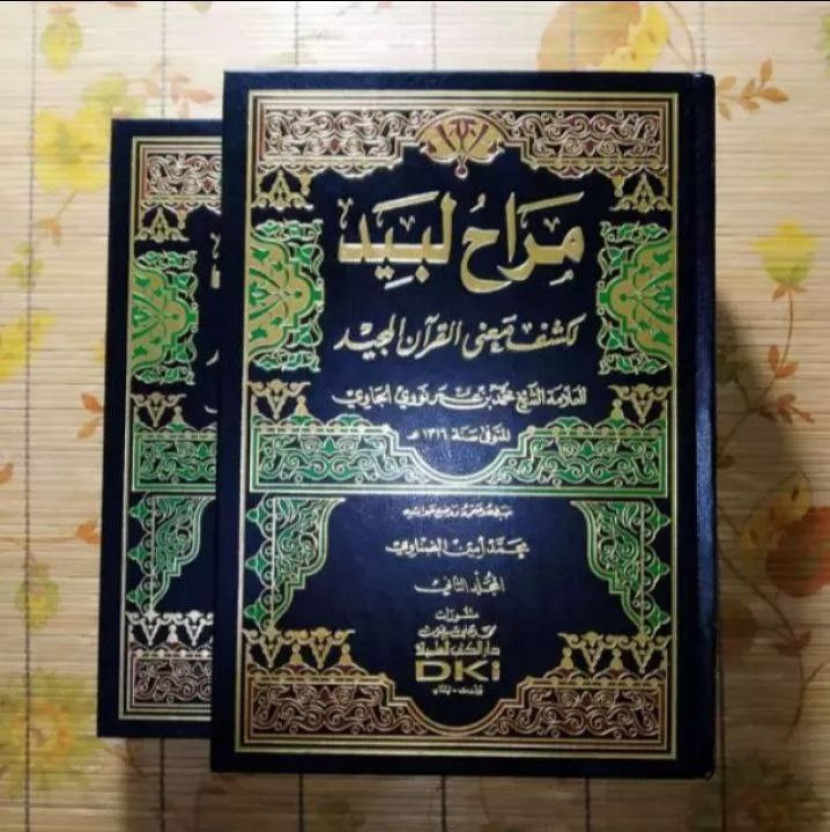 مَرَاحُ لَبِيَد
لكشف معنى القرآن المجيد
للعلامة الشيخ محمد بن عمر نووي الجاوي
المتوفى سنة ١٣١٦ هـ
ضبطه وصححه ووضع حواشيه
محمد أمين الضناوي
المجلد الثاني
منشورات
محمد علي بيضون
دار الكتب العلمية
DKi
بيروت - لبنان